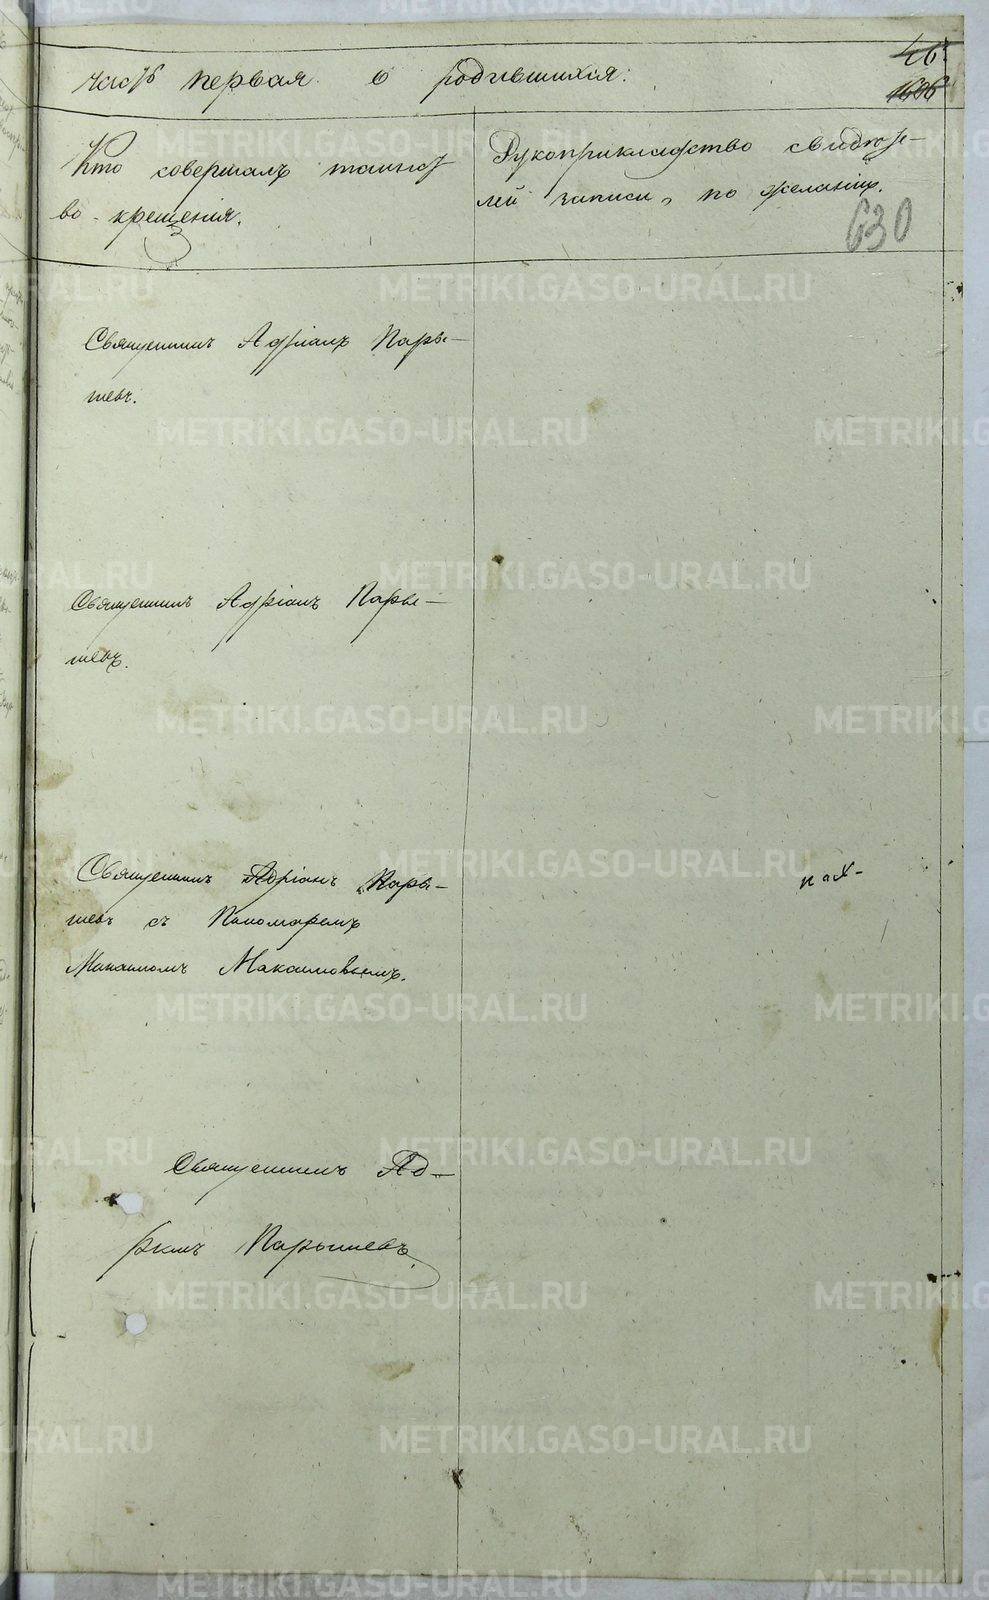 часть первая о родившихся:
46.
Кто совершалъ таинст
во крещенія.
Рукоприкладство свидѣте-
лей записи, по желанію.
630
Священникъ Адріанъ Пары-
шевъ.
Священникъ Адріанъ Пары-
шевъ.
Священникъ Адріанъ Пары-
шевъ съ Пономаремъ
Максимомъ Максимовымъ.
Священникъ Ад-
ріанъ Парышевъ.
METRIKI.GASO-URAL.RU